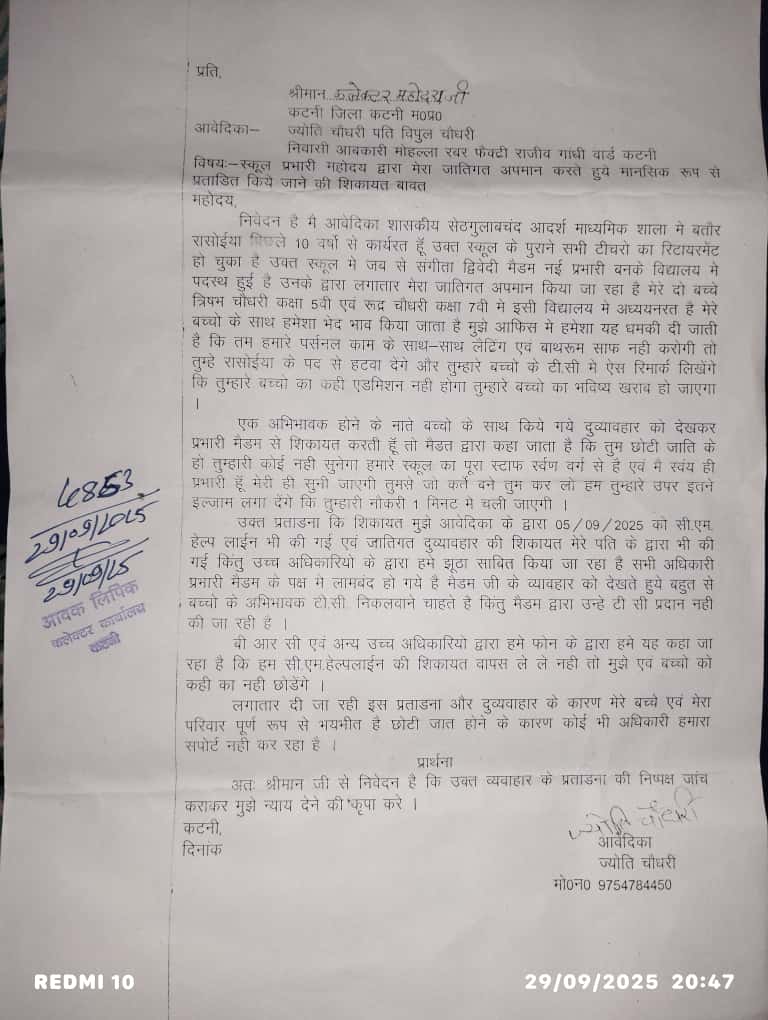 प्रति,
श्रीमान कलेक्टर महोदय जी
कटनी जिला कटनी म०प्र०
आवेदिका– ज्योति चौधरी पति विपुल चौधरी
निवासी आबकारी मोहल्ला रबर फैक्ट्री राजीव गांधी वार्ड कटनी
विषयः–स्कूल प्रभारी महोदय द्वारा मेरा जातिगत अपमान करते हुये मानसिक रूप से
प्रताडित किये जाने की शिकायत बावत
महोदय,
निवेदन है मै आवेदिका शासकीय सेठगुलाबचंद आदर्श माध्यमिक शाला मे बतौर
रासोईया पिछले 10 वर्षो से कार्यरत हूँ उक्त स्कूल के पुराने सभी टीचरो का रिटायरमेंट
हो चुका है उक्त स्कूल मे जब से संगीता द्विवेदी मैडम नई प्रभारी बनके विद्यालय मे
पदस्थ हुई है उनके द्वारा लगातार मेरा जातिगत अपमान किया जा रहा है मेरे दो बच्चे
त्रिषभ चौधरी कक्षा 5वी एवं रूद्र चौधरी कक्षा 7वी मे इसी विद्यालय मे अध्ययनरत है मेरे
बच्चो के साथ हमेशा भेद भाव किया जाता है मुझे आफिस मे हमेशा यह धमकी दी जाती
है कि तम हमारे पर्सनल काम के साथ–साथ लैटिंग एवं बाथरूम साफ नही करोगी तो
तुम्हे रासोईया के पद से हटवा देंगे और तुम्हारे बच्चो के टी.सी मे ऐस रिमार्क लिखेंगे
कि तुम्हारे बच्चो का कही एडमिशन नही होगा तुम्हारे बच्चो का भविष्य खराब हो जाएगा
।
एक अभिभावक होने के नाते बच्चो के साथ किये गये दुव्यावहार को देखकर
प्रभारी मैडम से शिकायत करती हूँ तो मैडत द्वारा कहा जाता है कि तुम छोटी जाति के
हो तुम्हारी कोई नही सुनेगा हमारे स्कूल का पूरा स्टाफ र्स्वण वर्ग से है एवं मै स्वंय ही
प्रभारी हूँ मेरी ही सुनी जाएगी तुमसे जो कर्ते बने तुम कर लो हम तुम्हारे उपर इतने
इल्जाम लगा देंगे कि तुम्हारी नोकरी 1 मिनट मे चली जाएगी ।
उक्त प्रताडना कि शिकायत मुझे आवेदिका के द्वारा 05/09/2025 को सी.एम.
हेल्प लाईन भी की गई एवं जातिगत दुव्यावहार की शिकायत मेरे पति के द्वारा भी की
गई किंतु उच्च अधिकारियो के द्वारा हमे झूठा साबित किया जा रहा है सभी अधिकारी
प्रभारी मैडम के पक्ष मे लामबंद हो गये है मैडम जी के व्यावहार को देखते हुये बहुत से
बच्चो के अभिभावक टी.सी. निकलवाने चाहते है किंतु मैडम द्वारा उन्हे टी सी प्रदान नही
की जा रही है ।
बी आर सी एवं अन्य उच्च अधिकारियो द्वारा हमे फोन के द्वारा हमे यह कहा जा
रहा है कि हम सी.एम.हेल्पलाईन की शिकायत वापस ले ले नही तो मुझे एवं बच्चो को
कही का नही छोडेंगे ।
लगातार दी जा रही इस प्रताडना और दुव्यवाहार के कारण मेरे बच्चे एवं मेरा
परिवार पूर्ण रूप से भयभीत है छोटी जात होने के कारण कोई भी अधिकारी हमारा
सपोर्ट नही कर रहा है ।
प्रार्थना
अतः श्रीमान जी से निवेदन है कि उक्त व्यवाहार के प्रताडना की निष्पक्ष जांच
कराकर मुझे न्याय देने की कृपा करे ।
कटनी,
दिनांक
ज्योति चौधरी
आवेदिका
ज्योति चौधरी
मो०न० 9754784450
4853
29/09/2025
29/09/25
आवक लिपिक
कलेक्टर कार्यालय
कटनी
REDMI 10
29/09/2025 20:47